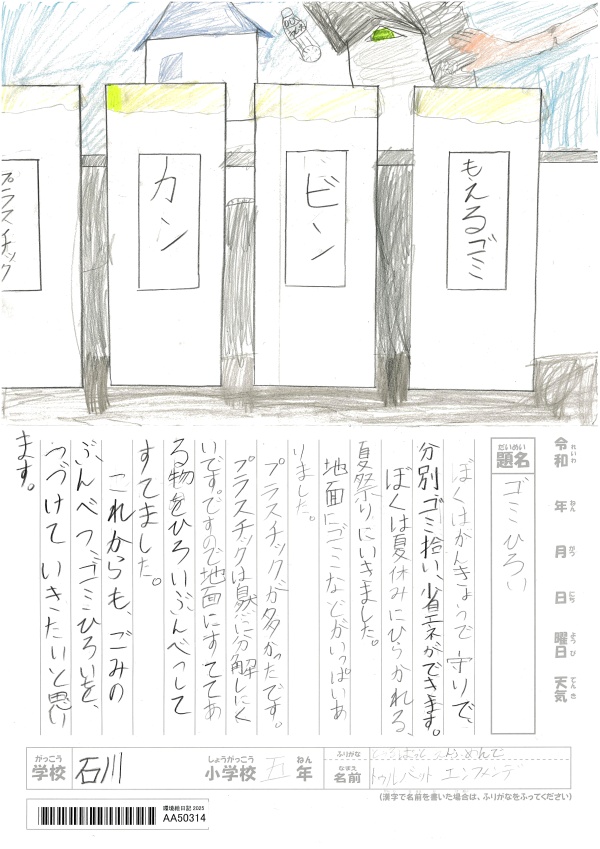 もえるゴミ
ビン
カン
プラスチック
令和 年 月 日 曜日 天気
れいわ ねん がつ にち ようび てんき
だいめい
題名
ゴミひろい
ぼくはかんきょうで守りで、
分別ゴミ拾い、省エネができます。
ぼくは夏休みにひらかれる、
夏祭りにいきました。
地面にゴミなどがいっぱいあ
りました。
プラスチックが多かったです。
プラスチックは自然に分解しにく
いです。ですので地面にすててあ
る物をひろいぶんべつして
すてました。
これからも、ごみの
ぶんべつ、ゴミひろいを、
つづけていきたいと思い
ます。
がっこう
学校
石川
しょうがっこう
小学校
五
ねん
年
ふりがな
なまえ
名前
エンフメンデ
(漢字で名前を書いた場合は、ふりがなをふってください)
環境絵日記 2025
AA50314